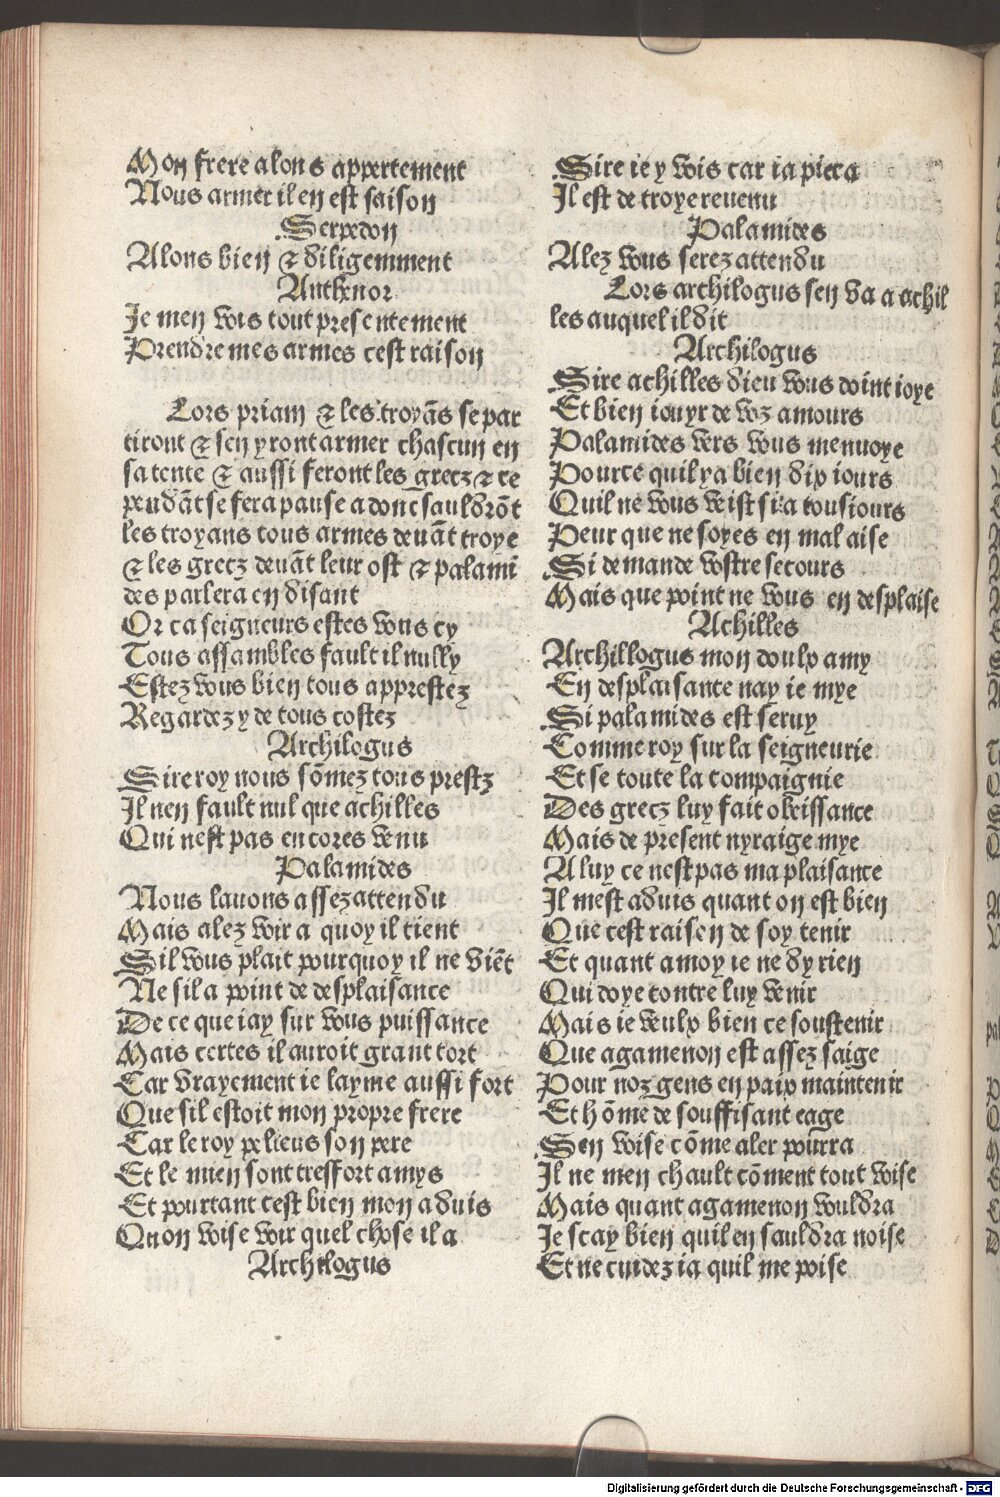 Mon frere alons appertement
Nous armer il en est saison
Serpedon
Alons bien & diligemment
Anthenor
Je men vois tout presentement
Prendre mes armes cest raison
Lors priam & les troyãs se par
tiront & sen yront armer chascun en
sa tente & aussi feront les grecz & ce
pendãt se fera pause adonc sauldrõt
les troyans tous armes deuãt troye
& les grecz deuãt leur ost & palami
des parlera en disant
Or ca seigneurs estes vous cy
Tous assambles fault il nully
Estez vous bien tous apprestez
Regardez y de tous costez
Archilogus
Sire roy nous sõmez tous prestz
Il nen fault nul que achilles
Qui nest pas encores venu
Palamides
Nous lauons assez attendu
Mais alez voir a quoy il tient
Sil vous plait pourquoy il ne viẽt
Ne sil a point de desplaisance
De ce que iay sur vous puissance
Mais certes il auroit grant tort
Car vrayement ie layme aussi fort
Que sil estoit mon propre frere
Car le roy peleus son pere
Et le mien sont tresfort amys
Et pourtant cest bien mon aduis
Quon voise voir quel chose il a
Archilogus
Sire ie y vois car ia pieca
Il est de troye reuenu
Palamides
Alez vous serez attendu
Lors archilogus sen va a achil
les auquel il dit
Archilogus
Sire achilles dieu vous doint ioye
Et bien iouyr de voz amours
Palamides vers vous menuoye
Pource quil ya bien dix iours
Quil ne vous veist si a tousiours
Peur que ne soyes en mal aise
Si demande vostre secours
Mais que point ne vous en desplaise
Achilles
Archillogus mon doulx amy
En desplaisante nay ie mye
Si palamides est seruy
Comme roy sur la seigneurie
Et se toute la compaignie
Des grecz luy fait obeissance
Mais de present nyraige mye
A luy ce nest pas ma plaisance
Il mest aduis quant on est bien
Que cest raison de soy tenir
Et quant a moy ie ne dy rien
Qui doye contre luy venir
Mais ie veulx bien ce soustenir
Que agamenon est assez saige
Pour noz gens en paix maintenir
Et hõme de souffisant eage
Sen voise cõme aler pourra
Il ne men chault cõment tout voise
Mais quant agamenon vouldra
Je scay bien quil en sauldra noise
Et ne cuidez ia quil me poise
Digitalisierung gefördert durch die Deutsche Forschungsgemeinschaft - DFG